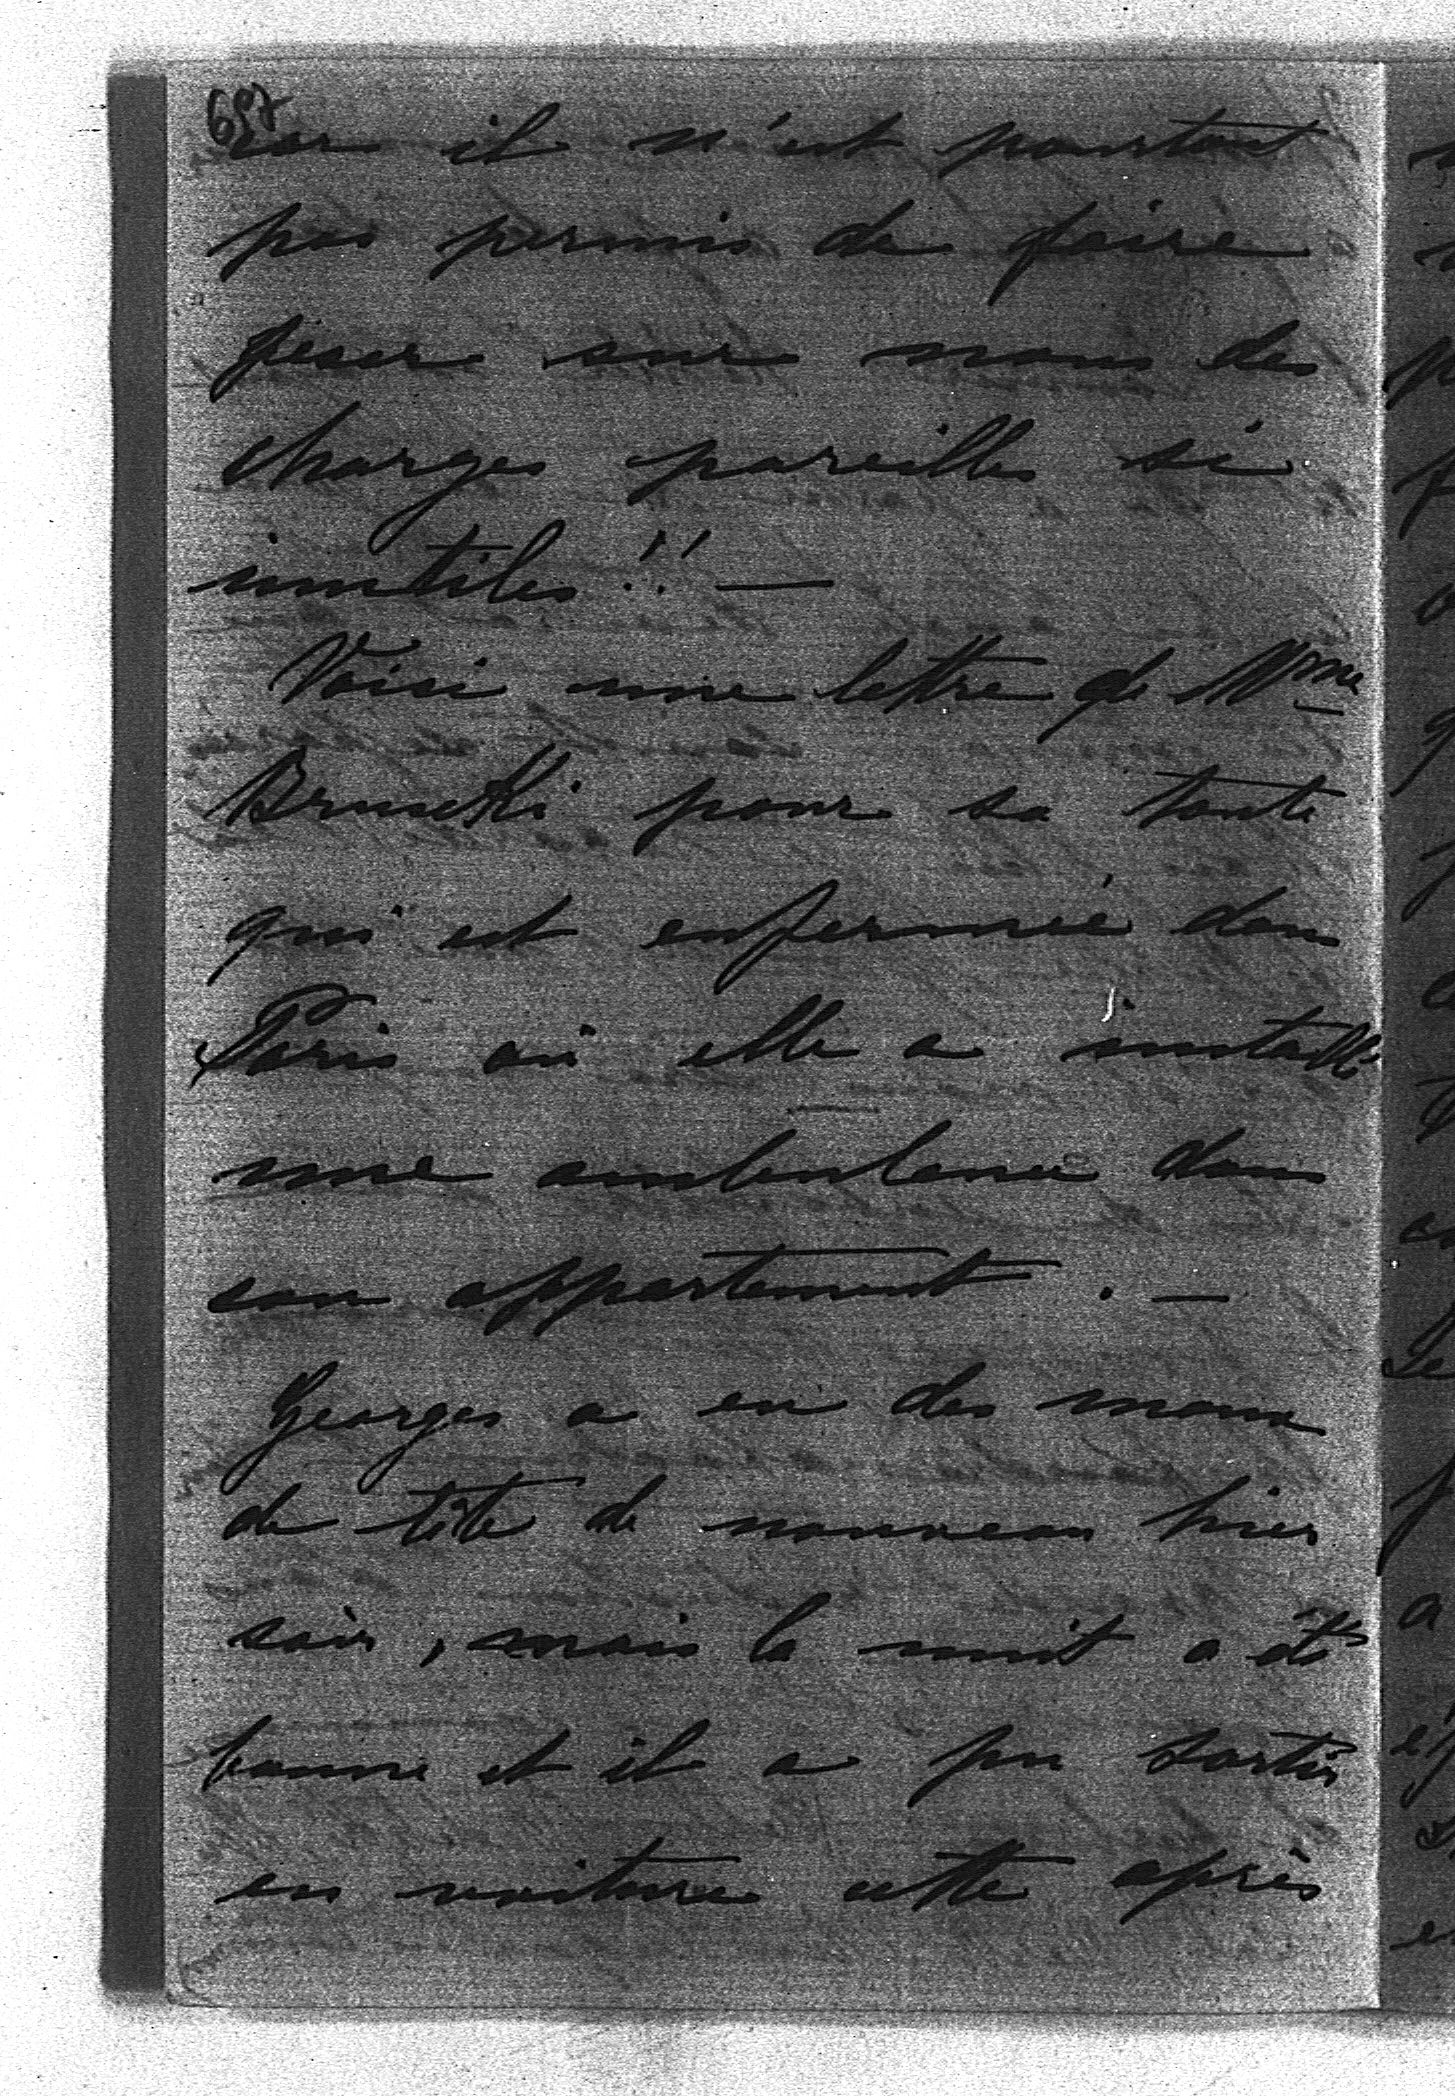 697
car il n'est pourtant
pas permis de faire
peser sur nous des
charges pareilles si
inutiles!! —
Voici une lettre de Mme
pour sa tante
qui est enfermée dans
Paris où elle a installé
une ambulance dans
son appartement. —
Georges a eu des maux
de tête de nouveau hier
soir, mais la nuit a été
bonne et il a pu sortir
en voiture cette après